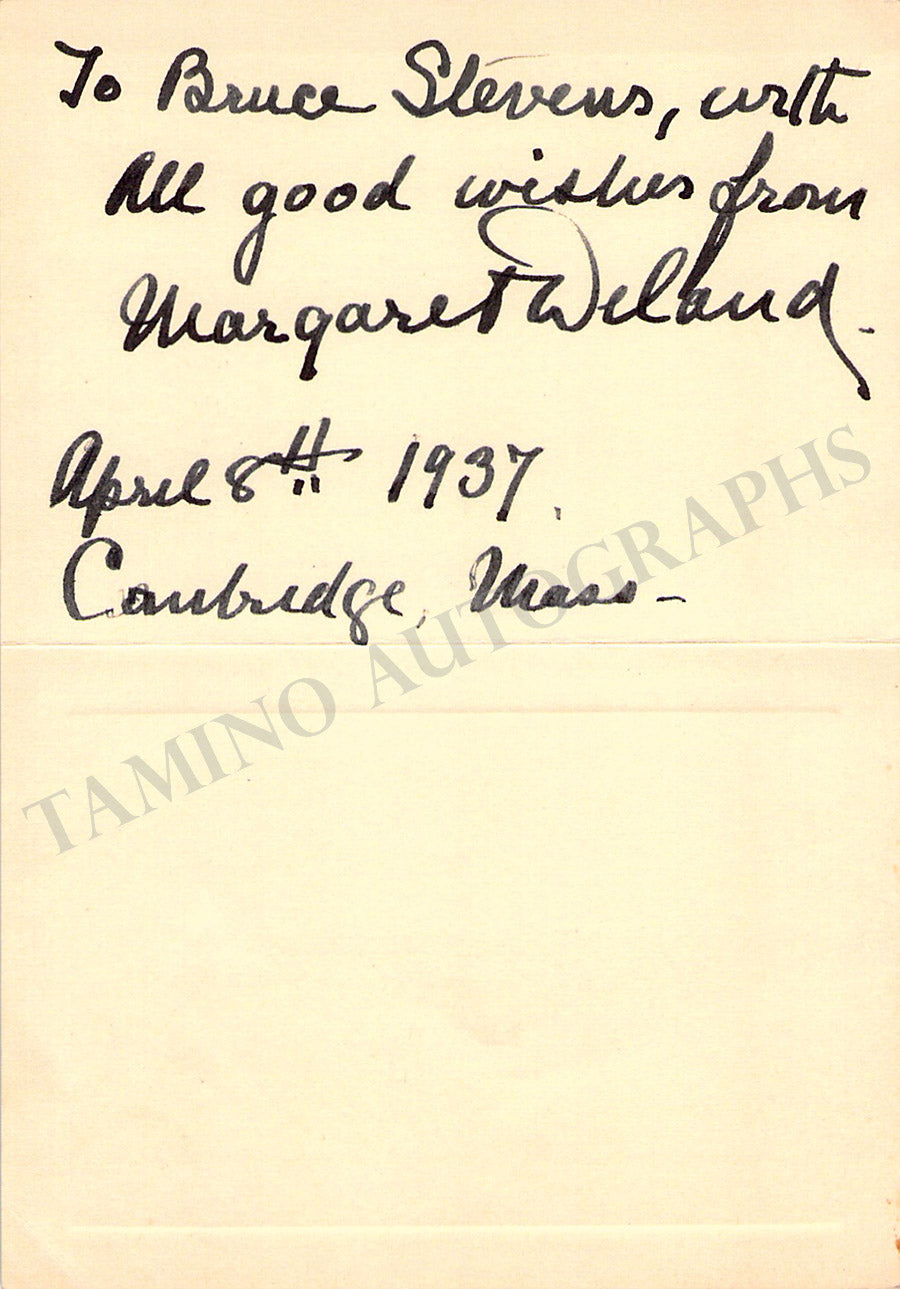 To Bruce Stevens, with
All good wishes from
Margaret Deland.
April 8th 1937.
Cambridge, Mass-
TAMINO AUTOGRAPHS